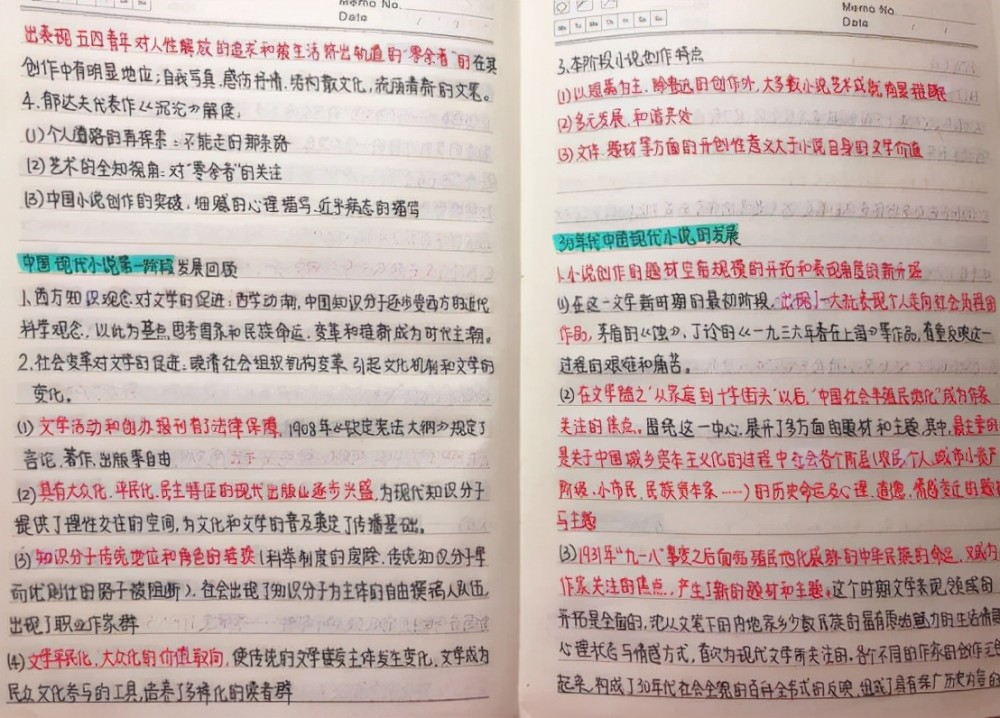 Memo No.
Date / /
出表现五四青年对人性解放的追求和被生活挤出轨道的"零余者"的在其
创作中有明显地位;自我写真,感伤抒情,结构散文化,流丽清新的文笔。
4.郁达夫代表作《沉沦》解读:
(1)个人道路的再探索:不能走的那条路
(2)艺术的全知视角:对"零余者"的关注
(3)中国小说创作的突破,细腻的心理描写、近乎病态的描写
中国现代小说第一阶段发展回顾
1.西方知识观念对文学的促进:西学动潮,中国知识分子逐步受西方的近代
科学观念,以此为基点思考国家和民族命运,变革和维新成为时代主潮。
2.社会变革对文学的促进:晚清社会组织机构变革,引起文化机制和文学的
变化。
(1)文学活动和创办报刊有了法律保障,1908年《钦定宪法大纲》规定了
言论、著作、出版集自由
(2)具有大众化、平民化、民主特征的现代出版业逐步兴盛,为现代知识分子
提供了理性交往的空间,为文化和文学的普及奠定了传播基础。
(3)知识分子传统地位和角色的转换(科举制度的废除,传统知识分子学
而优则仕的路子被阻断)、社会出现了知识分子为主体的自由撰稿人队伍,
出现了职业作家群
(4)文学平民化、大众化的价值取向,使传统的文学接受主体发生变化,文学成为
民众文化参与的工具,培养了多样化的读者群
Mo Tu We Th Fr Sa Su
Memo No.
Date / /
3.本阶段小说创作特点
(1)以短篇为主,除鲁迅的创作外,大多数小说艺术成就尚显稚嫩
(2)多元发展,和谐共处
(3)文体、题材等方面的开创性意义大于小说自身的文学价值
30年代中国现代小说的发展
1.小说创作的题材空前规模的开拓和表现角度的新开拓
(1)在这一文学新时期的最初阶段,出现了一大批表现个人走向社会历程的
作品,茅盾的《蚀》、丁玲的《一九三〇年春在上海》等作品,着重反映这一
过程的艰难和痛苦。
(2)在文学随之"从家庭到十字街头"以后,"中国社会半殖民地化"成为作家
关注的焦点。围绕这一中心,展开了多方面的题材和主题,其中,最主要的
是关于中国城乡资本主义化的过程中社会各个阶层(农民、个人、城市小资产
阶级、小市民、民族资本家……)的历史命运及心理、道德、情感变迁的题材
与主题
(3)1931年"九一八"事变之后面临殖民地化威胁的中华民族的命运,又成为
作家关注的焦点,产生了新的题材和主题。这个时期文学表现领域的
开拓是全面的,沈从文笔下的内地家乡少数民族的富有原始魅力的生活情
心理状态与情感方式,首次为现代文学所关注的,各个不同的作家的创作
起来,构成了30年代社会全貌的百科全书式的反映,组成了具有深广历史内容的